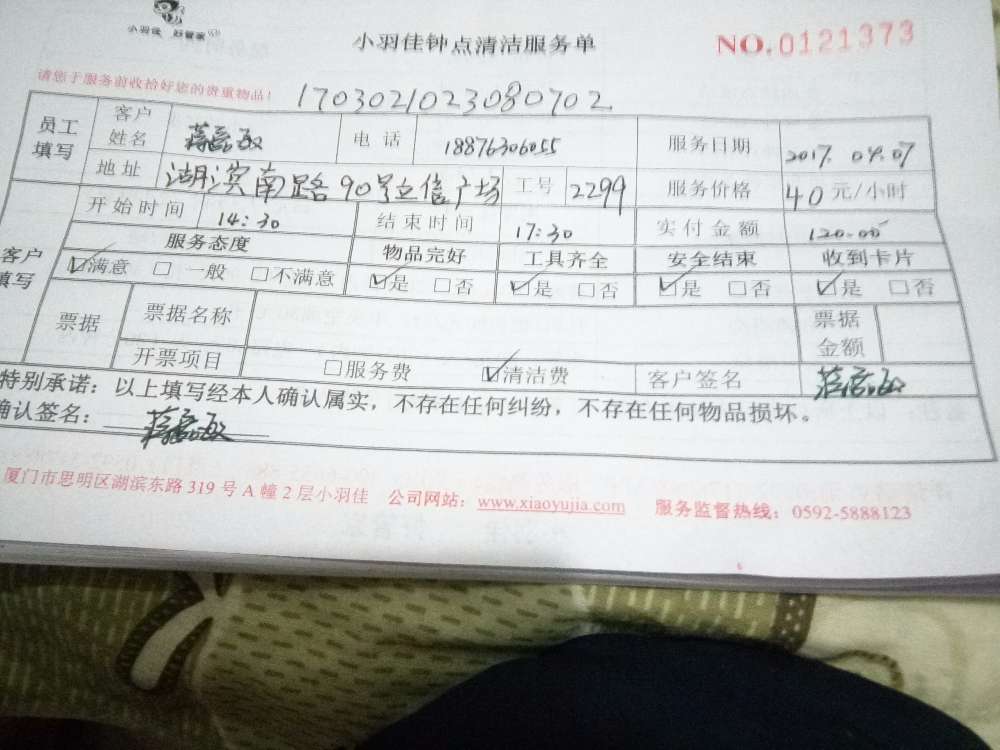 小羽佳 好管家
小羽佳钟点清洁服务单
NO.0121373
请您于服务前收拾好您的贵重物品!
1703021023080702
员工填写 客户姓名 电话 18876306055 服务日期 2017.04.07
地址 湖滨南路90号立信广场 工号 2299 服务价格 40元/小时
客户填写 开始时间 14:30 结束时间 17:30 实付金额 120.00
服务态度 物品完好 工具齐全 安全结束 收到卡片
☑满意 □一般 □不满意 ☑是 □否 ☑是 □否 ☑是 □否 ☑是 □否
票据 票据名称 票据金额
开票项目 □服务费 ☑清洁费 客户签名
特别承诺：以上填写经本人确认属实，不存在任何纠纷，不存在任何物品损坏。
确认签名：
厦门市思明区湖滨东路319号A幢2层小羽佳 公司网站：www.xiaoyujia.com 服务监督热线：0592-5888123